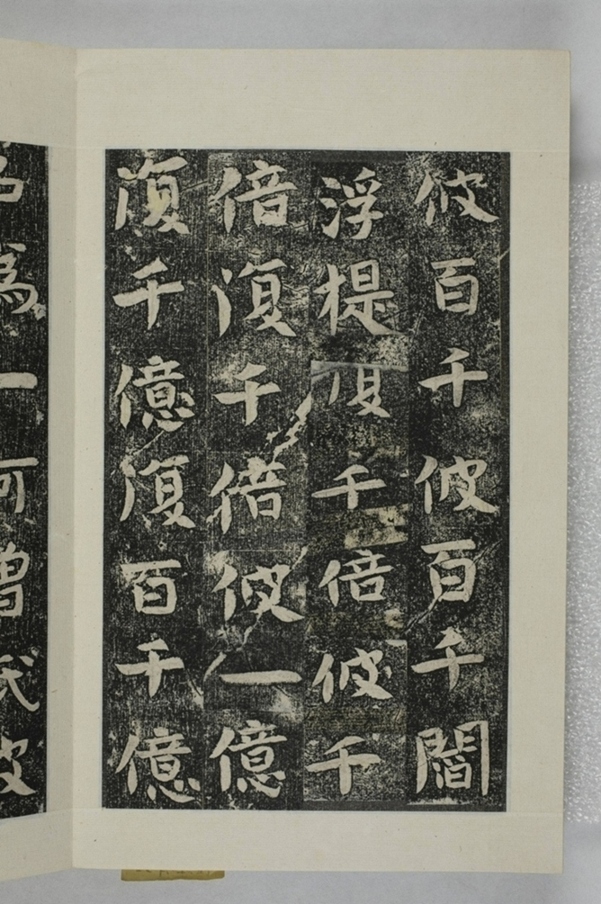 彼百千彼百千閻
浮提復千倍彼千
倍復千倍彼一億
復千億復百千億
名為一阿僧祇彼